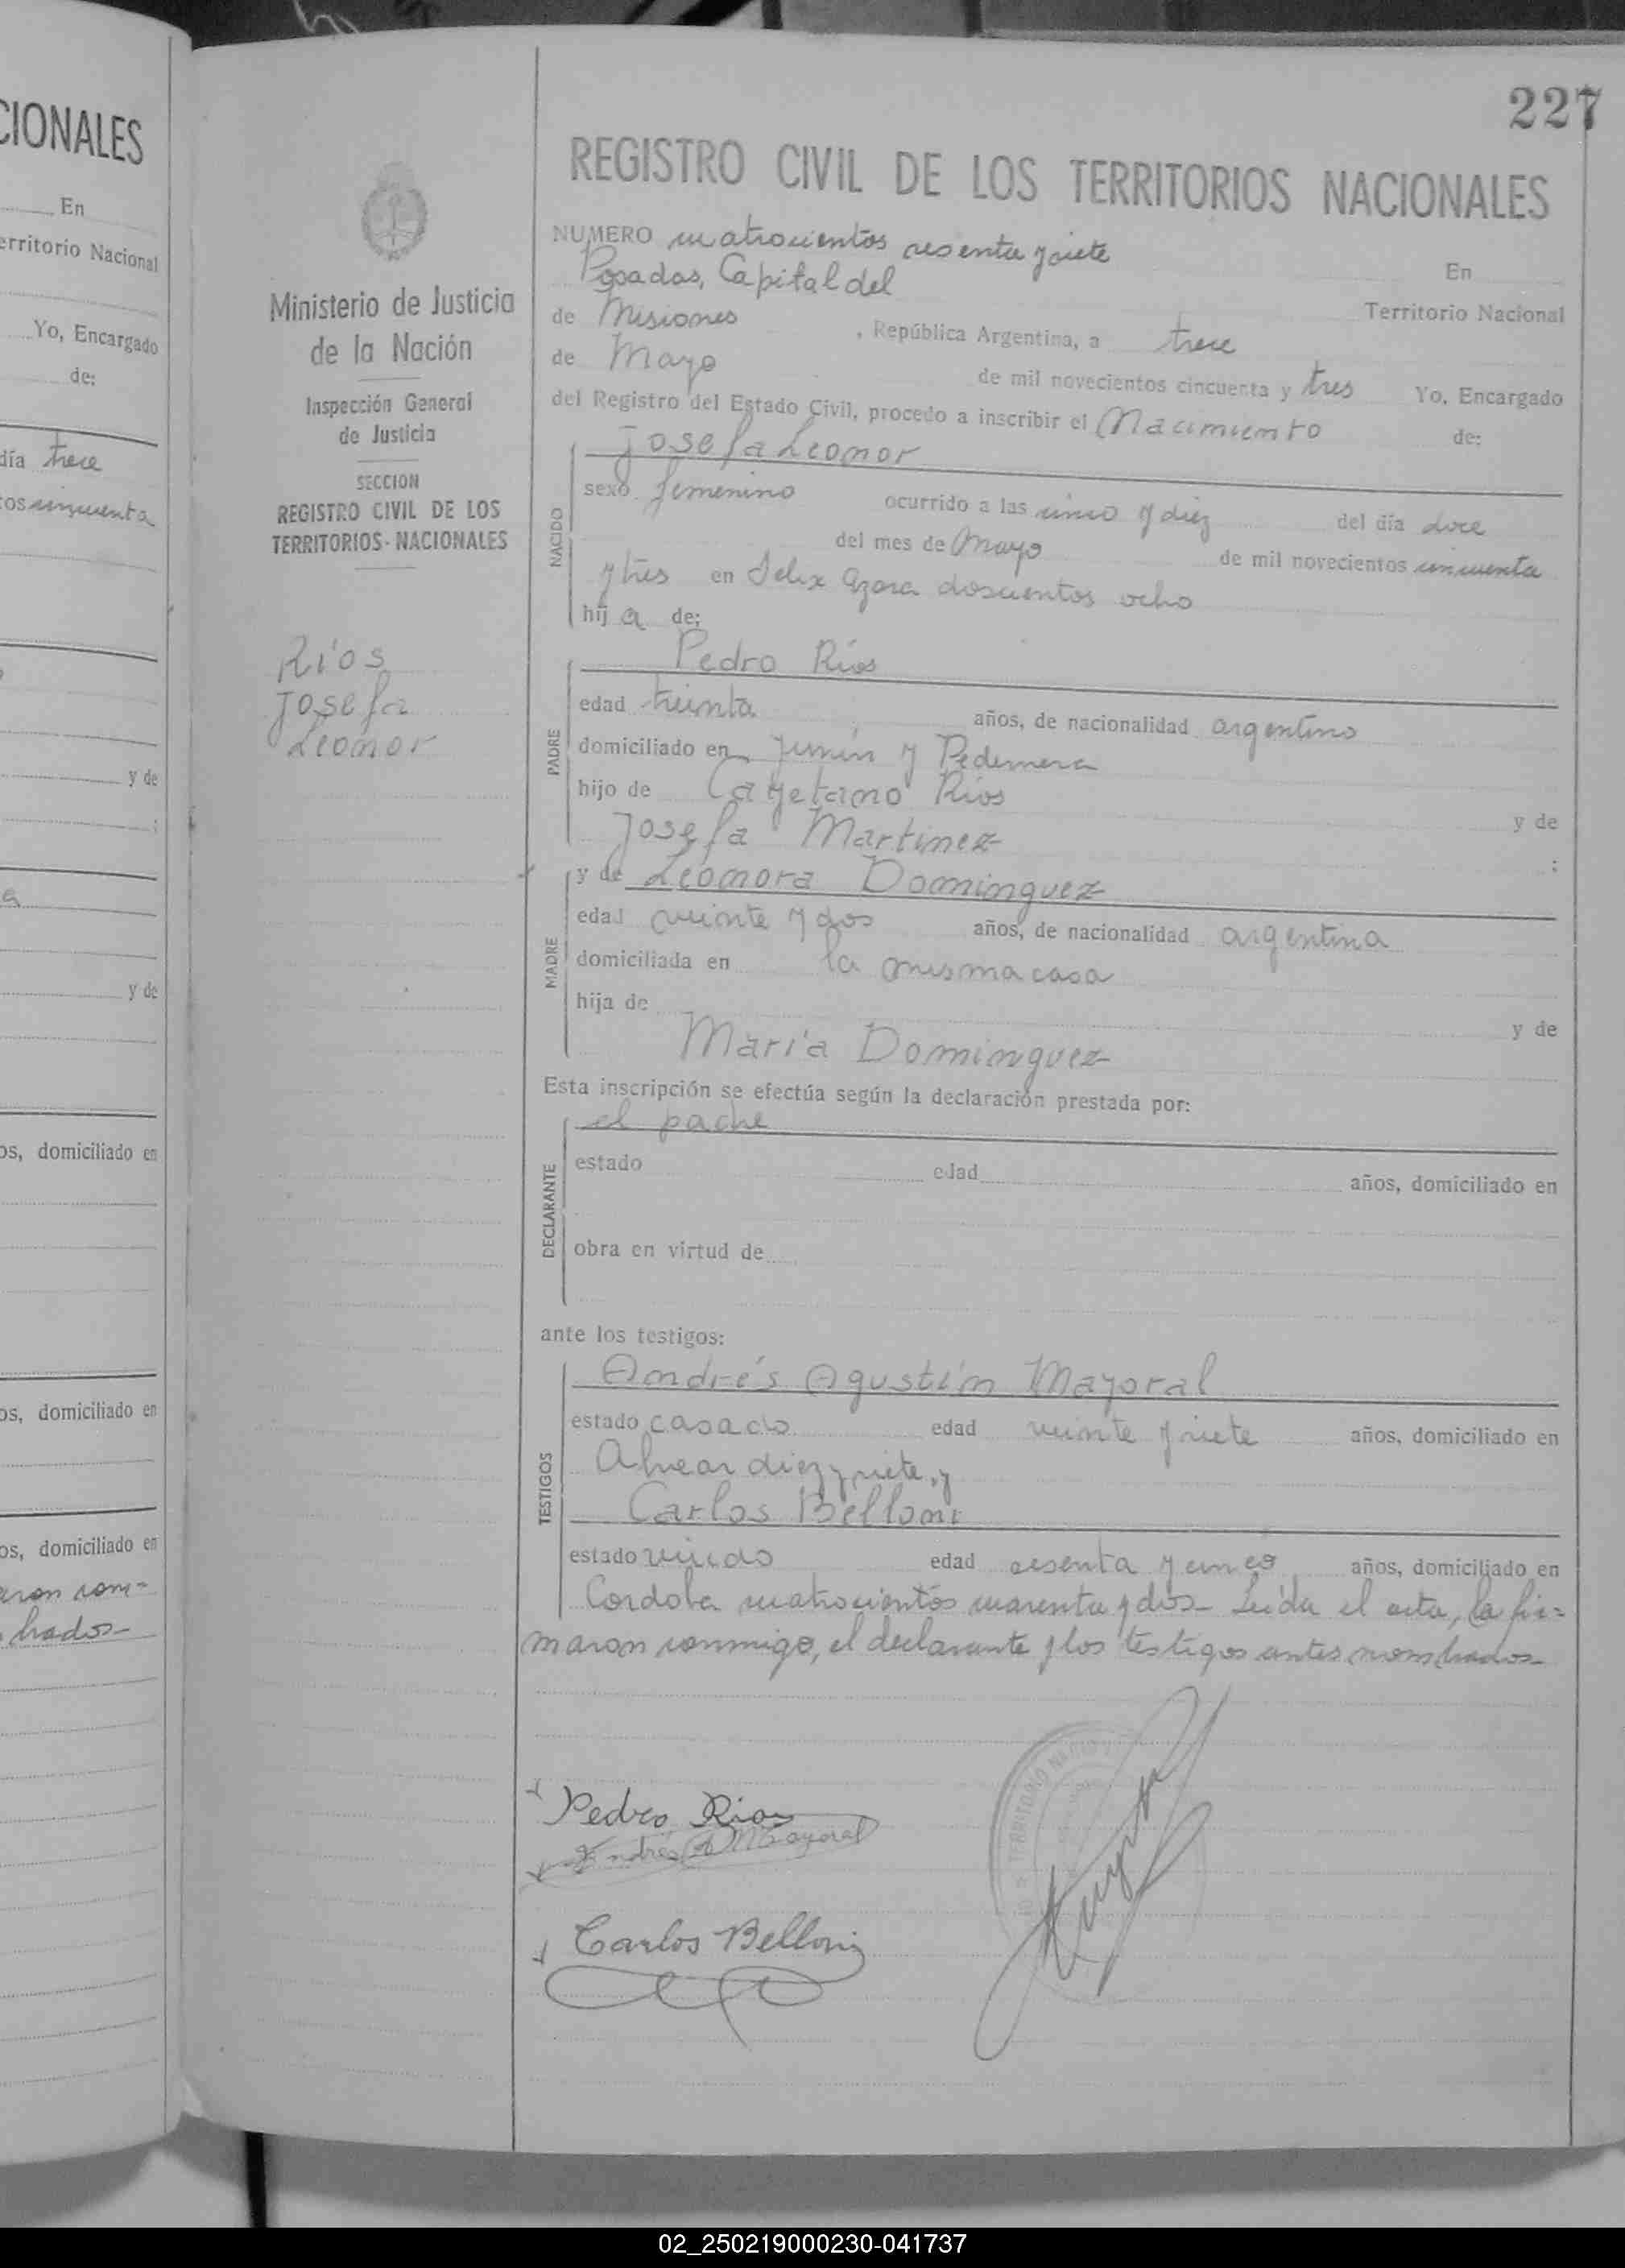 CIONALES
En
erritorio Nacional
Yo, Encargado
de:
día trece
os cincuenta
y de
a
y de
os, domiciliado en
os, domiciliado en
os, domiciliado en
aron con-
brados-
227
Ministerio de Justicia
de la Nación
Inspección General
de Justicia
SECCION
REGISTRO CIVIL DE LOS
TERRITORIOS-NACIONALES
Ríos
Josefa
Leonor
REGISTRO CIVIL DE LOS TERRITORIOS NACIONALES
NUMERO cuatrocientos sesenta y siete En
Posadas, Capital del Territorio Nacional
de Misiones, República Argentina, a trece
de Mayo de mil novecientos cincuenta y tres Yo, Encargado
del Registro del Estado Civil, procedo a inscribir el Nacimiento de:
Josefa Leonor
NACIDO
sexo femenino ocurrido a las cinco y diez del día doce
del mes de Mayo de mil novecientos cincuenta
y tres en Felix Azara doscientos ocho
hij a de:
Pedro Ríos
PADRE
edad treinta años, de nacionalidad argentino
domiciliado en Junín y Pedernera
hijo de Cayetano Ríos y de
Josefa Martinez ;
y de Leonora Dominguez
MADRE
edad veinte y dos años, de nacionalidad argentina
domiciliada en la misma casa
hija de y de
María Dominguez
Esta inscripción se efectúa según la declaración prestada por:
el padre
DECLARANTE
estado edad años, domiciliado en
obra en virtud de
ante los testigos:
Andrés Agustín Mayoral
TESTIGOS
estado casado edad veinte y siete años, domiciliado en
Alvear diez y siete, y
Carlos Belloni
estado viudo edad sesenta y cinco años, domiciliado en
Cordoba cuatrocientos cuarenta y dos- Leída el acta, la fir=
maron conmigo, el declarante y los testigos antes nombrados-
Pedro Rios
Andrés A Mayoral
Carlos Belloni
TERRITORIO
02_250219000230-041737